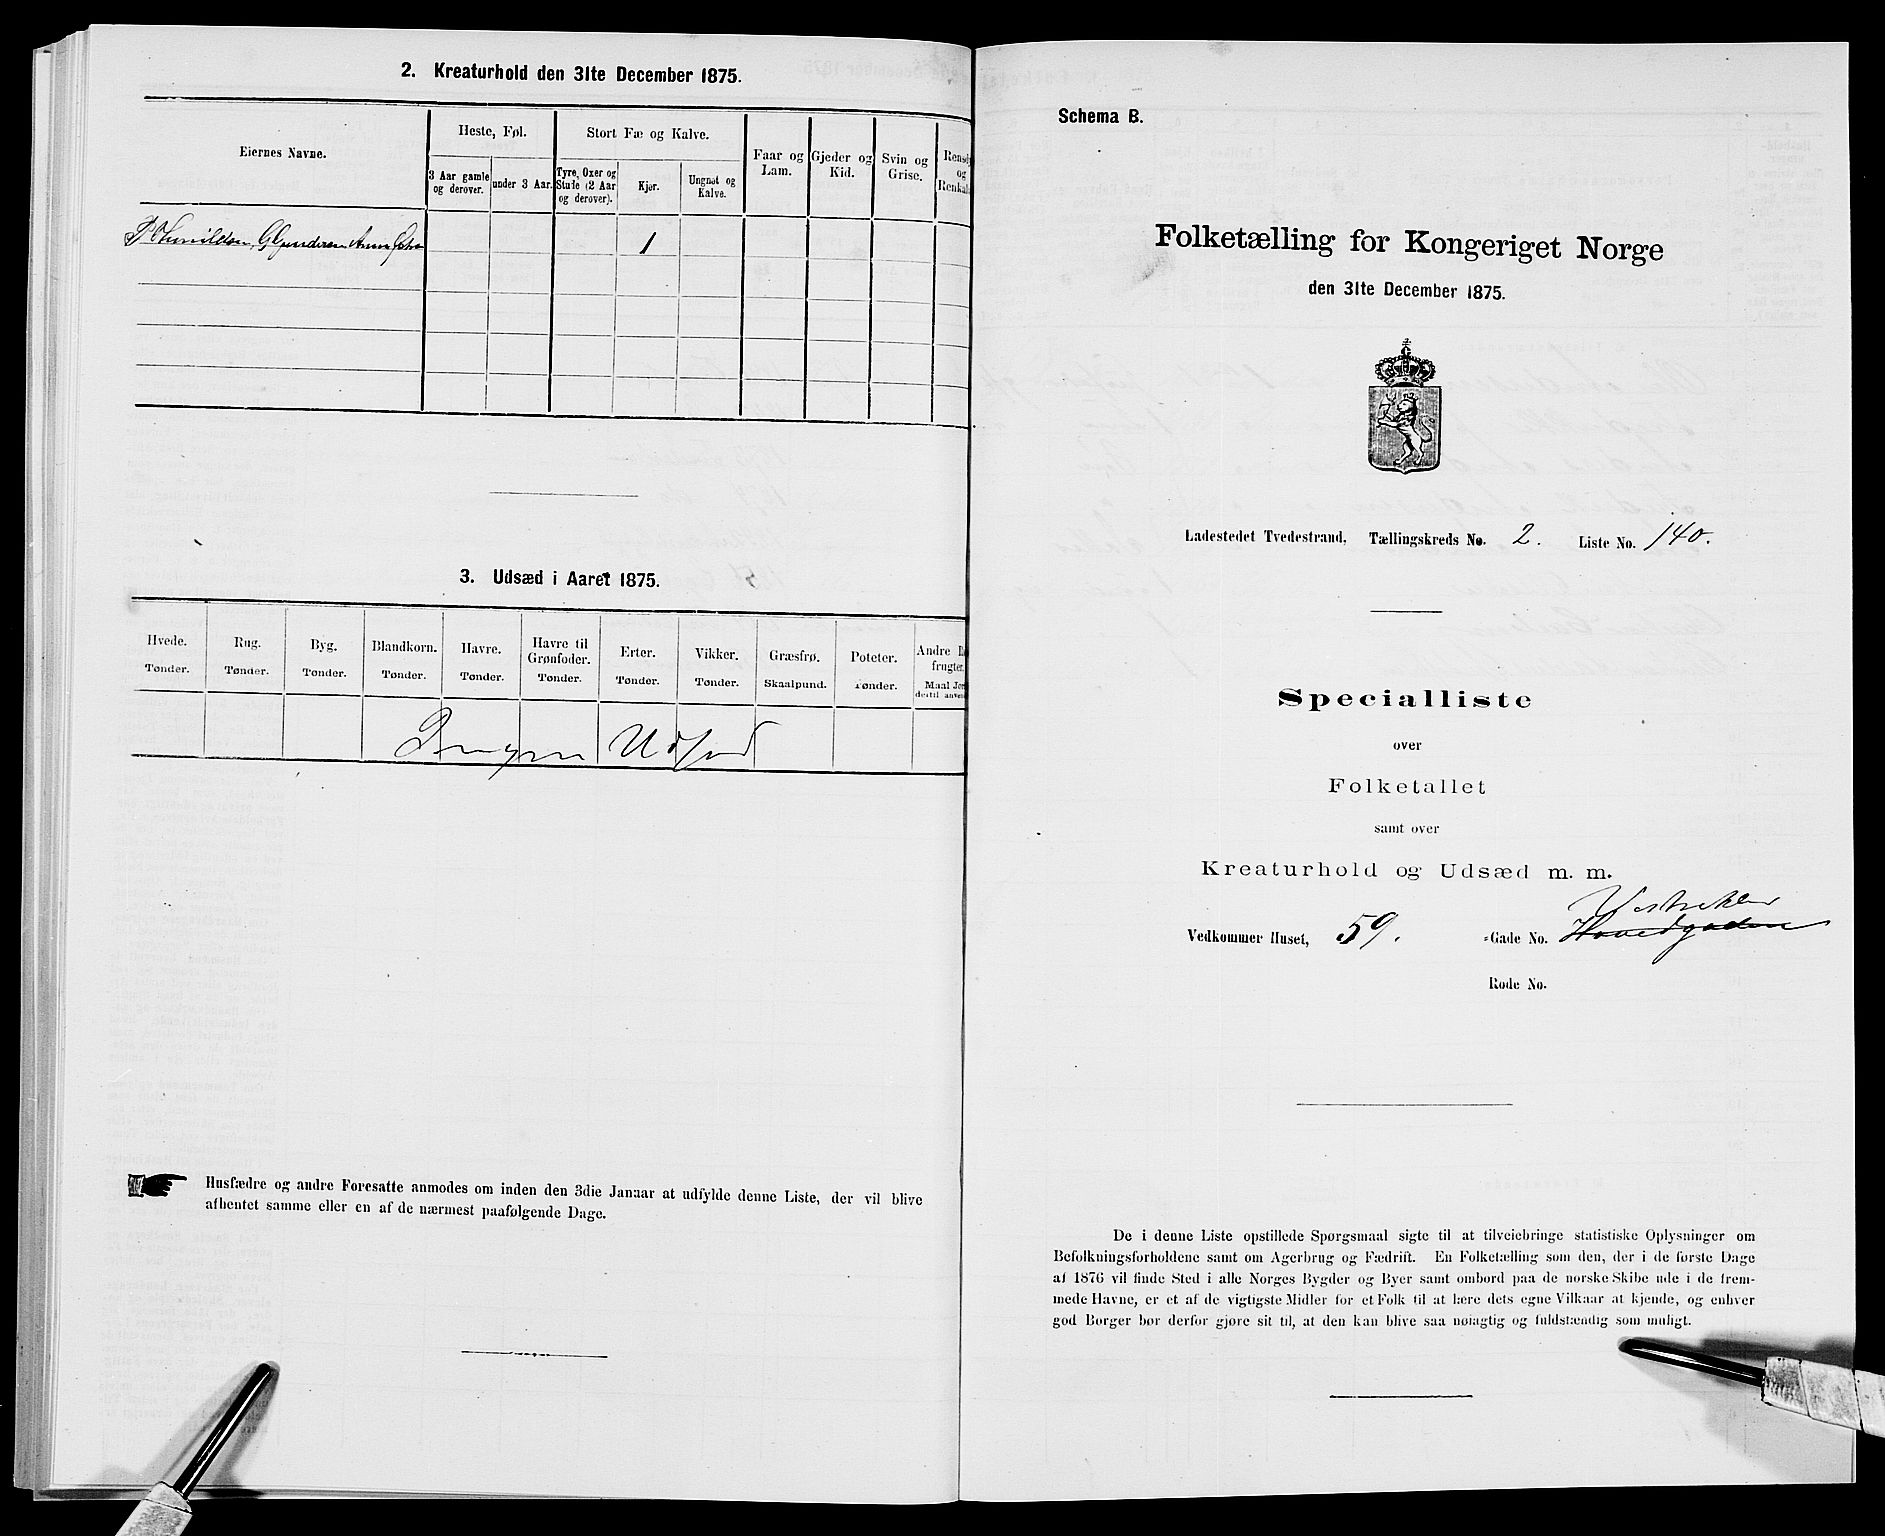 2. Kreaturhold den 31te December 1875.
Eiernes Navne.
Heste, Føl.
Stort Fæ og Kalve.
Faar og Lam.
Gjeder og Kid.
Svin og Grise.
og
3 Aar gamle og derover.
under 3 Aar.
Tyre, Oxer og Stude (2 Aar og derover).
Kjør.
Ungnøt og Kalve.
1
3. Udsæd i Aaret 1875.
Hvede. Rug. Byg. Blandkorn. Havre. Havre til Grønfoder. Erter. Vikker. Græsfrø. Poteter. Andre
frugter.
Tønder. Tønder. Tønder. Tønder. Tønder. Tønder. Tønder. Tønder. Skaalpund. Tønder. Maal
Udsæd
Husfædre og andre Foresatte anmodes om inden den 3die Januar at udfylde denne Liste, der vil blive
afhentet samme eller en af de nærmest paafølgende Dage.
Schema B.
Folketælling for Kongeriget Norge
den 31te December 1875.
Ladestedet Tvedestrand, Tællingskreds No. 2. Liste No. 140.
Specialliste
over
Folketallet
samt over
Kreaturhold og Udsæd m. m.
Vedkommer Huset, 59. -Gade No. Hovedgaden
Rode No.
De i denne Liste opstillede Spørgsmaal sigte til at tilveiebringe statistiske Oplysninger om
Befolkningsforholdene samt om Agerbrug og Fædrift. En Folketælling som den, der i de første Dage
af 1876 vil finde Sted i alle Norges Bygder og Byer samt ombord paa de norske Skibe ude i de frem-
mede Havne, er et af de vigtigste Midler for et Folk til at lære dets egne Vilkaar at kjende, og enhver
god Borger bør derfor gjøre sit til, at den kan blive saa nøiagtig og fuldstændig som muligt.